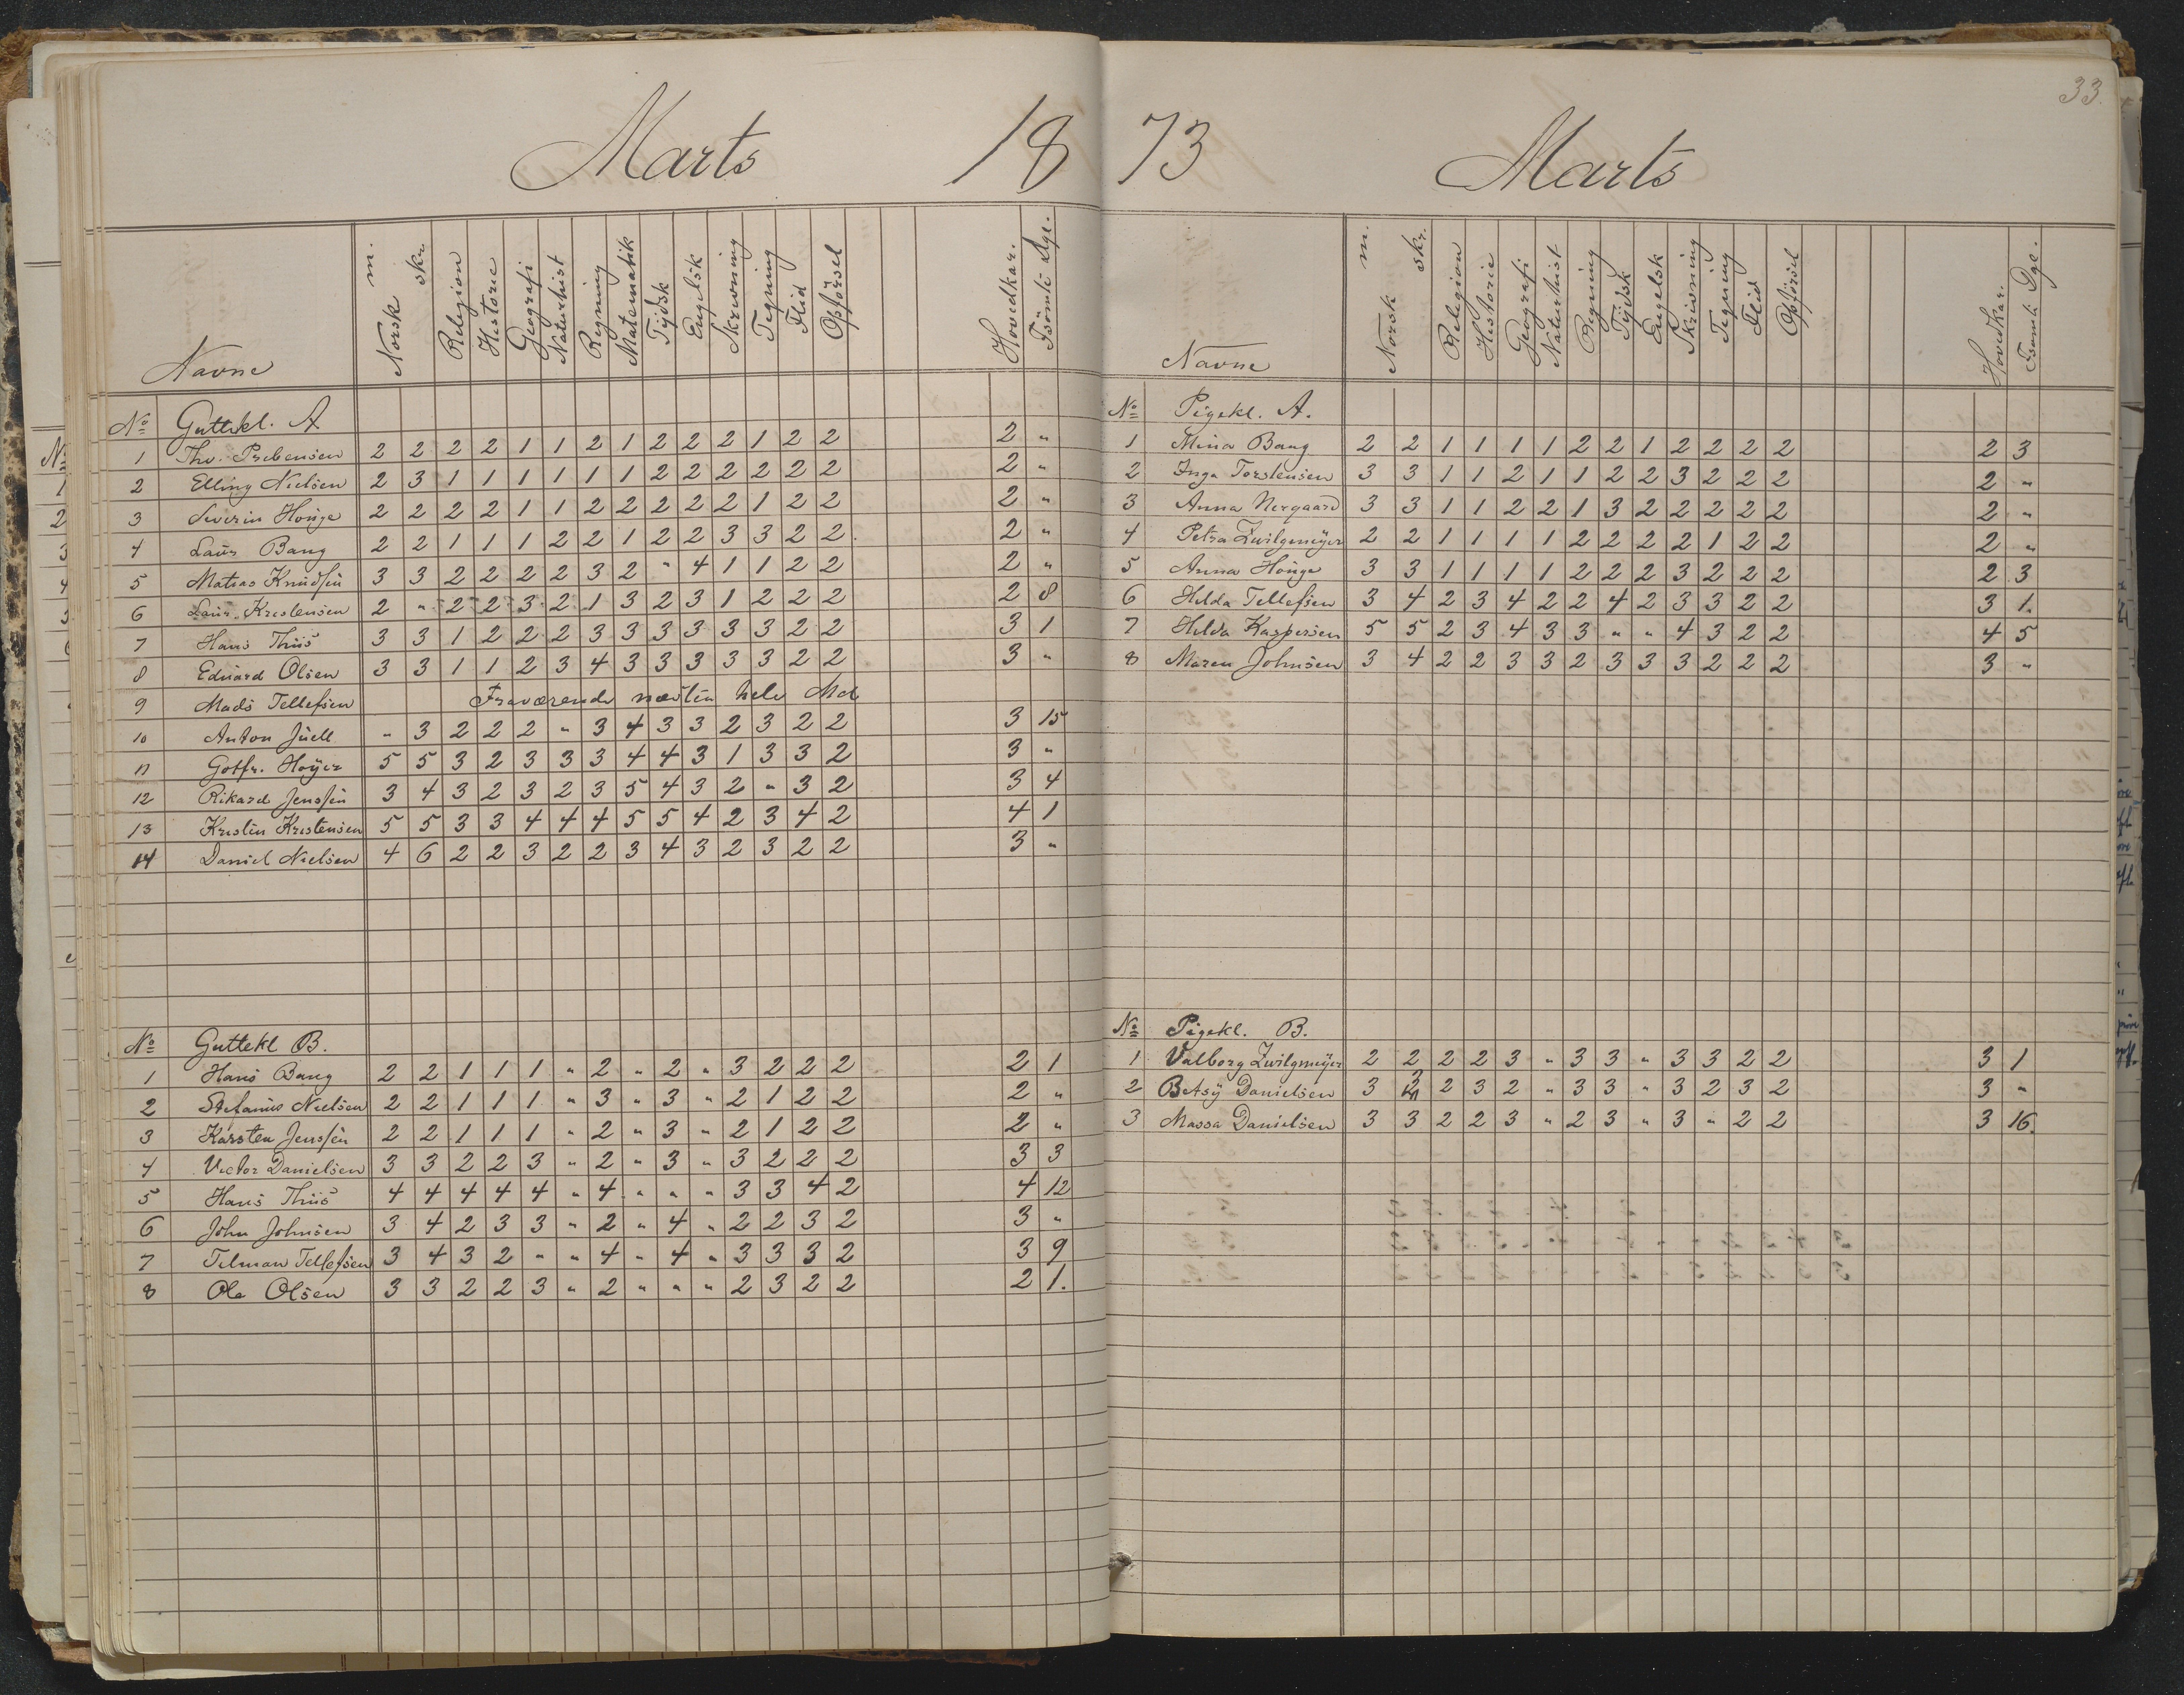 33.
Marts 18
Navne Norsk m. skr. Religion Historie Geografi Naturhist Regning Matematik Tydsk Engelsk Skrivning Tegning Flid Opførsel Hovedkar. Fsömte Dge.
No Guttekl. A
1 Thv. Prebensen 2 2 2 2 1 1 2 1 2 2 2 1 2 2 2 "
2 Elling Nielsen 2 3 1 1 1 1 1 1 2 2 2 2 2 2 2 "
3 Severin Houge 2 2 2 2 1 1 2 2 2 2 2 1 2 2 2 "
4 Laur Bang 2 2 1 1 1 2 2 1 2 2 3 3 2 2. 2 "
5 Matias Knudsen 3 3 2 2 2 2 3 2 " 4 1 1 2 2 2 "
6 Laur. Kristensen 2 " 2 2 3 2 1 3 2 3 1 2 2 2 2 8
7 Hans Thiis 3 3 1 2 2 2 3 3 3 3 3 3 2 2 3 1
8 Eduard Olsen 3 3 1 1 2 3 4 3 3 3 3 3 2 2 3 "
9 Mads Tellefsen Fraværende næsten hele Md
10 Anton Juell " 3 2 2 2 " 3 4 3 3 2 3 2 2 3 15
11 Gotfr. Høyer 5 5 3 2 3 3 3 4 4 3 1 3 3 2 3 "
12 Rikard Jenssen 3 4 3 2 3 2 3 5 4 3 2 " 3 2 3 4
13 Kristen Kristensen 5 5 3 3 4 4 4 5 5 4 2 3 4 2 4 1
14 Daniel Nielsen 4 6 2 2 3 2 2 3 4 3 2 3 2 2 3 "
No Guttekl B.
1 Hans Bang 2 2 1 1 1 " 2 " 2 " 3 2 2 2 2 1
2 Stefanus Nielsen 2 2 1 1 1 " 3 " 3 " 2 1 2 2 2 "
3 Karsten Jenssen 2 2 1 1 1 " 2 " 3 " 2 1 2 2 2 "
4 Victor Danielsen 3 3 2 2 3 " 2 " 3 " 3 2 2 2 3 3
5 Hans Thiis 4 4 4 4 4 " 4 " " " 3 3 4 2 4 12
6 John Johnsen 3 4 2 3 3 " 2 " 4 " 2 2 3 2 3 "
7 Tilman Tellefsen 3 4 3 2 " " 4 " 4 " 3 3 3 2 3 9
8 Ole Olsen 3 3 2 2 3 " 2 " " " 2 3 2 2 2 1.
73 Marts
Navne Norsk m. skr. Religion Historie Geografi Naturhist Regning Tydsk Engelsk Skrivning Tegning Flid Opførsel Hovedkar. Fsömte Dge.
No Pigekl. A.
1 Mina Bang 2 2 1 1 1 1 2 2 1 2 2 2 2 2 3
2 Inga Torstensen 3 3 1 1 2 1 1 2 2 3 2 2 2 2 "
3 Anna Nergaard 3 3 1 1 2 2 1 3 2 2 2 2 2 2 "
4 Petra Zwilgmeyer 2 2 1 1 1 1 2 2 2 2 1 2 2 2 "
5 Anna Houge 3 3 1 1 1 1 2 2 2 3 2 2 2 2 3
6 Hilda Tellefsen 3 4 2 3 4 2 2 4 2 3 3 2 2 3 1.
7 Hilda Kaspersen 5 5 2 3 4 3 3 " " 4 3 2 2 4 5
8 Maren Johnsen 3 4 2 2 3 3 2 3 3 3 2 2 2 3 "
No Pigekl. B.
1 Valborg Zwilgmeyer 2 2 2 2 3 " 3 3 " 3 3 2 2 3 1
2 Betsy Danielsen 3 3 2 3 2 " 3 3 " 3 2 3 2 3 "
3 Massa Danielsen 3 3 2 2 3 " 2 3 " 3 " 2 2 3 16.